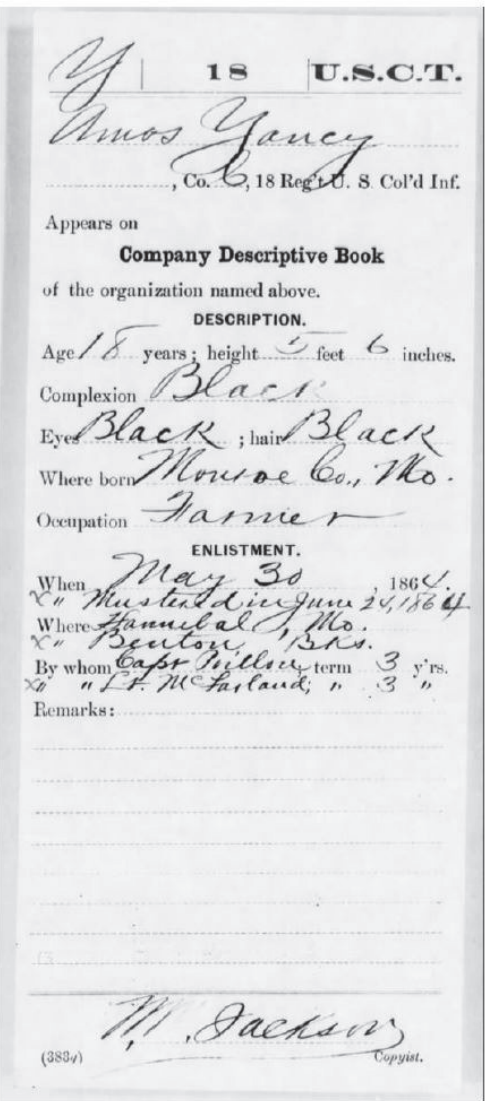 Y | 18 | U.S.C.T.
Amos Yancy
, Co. C, 18 Reg't U. S. Col'd Inf.
Appears on
Company Descriptive Book
of the organization named above.
DESCRIPTION.
Age 18 years; height 5 feet 6 inches.
Complexion Black
Eyes Black ; hair Black
Where born Monroe Co., Mo.
Occupation Farmer
ENLISTMENT.
When May 30 , 1864.
x " Mustered in June 24, 1864
Where Hannibal, Mo.
x " Benton Bks.
By whom Capt term 3 y'rs.
x " " Lt. McFarland; " 3 "
Remarks:
M. Jackson
(383g) Copyist.